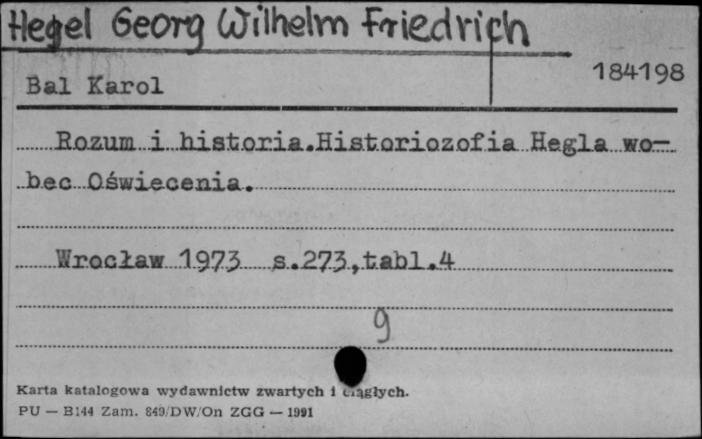 Hegel Georg Wilhelm Friedrich
184198
Bal Karol
Rozum i historia.Historiozofia Hegla wo-
bec Oświecenia.
Wrocław 1973 s.273,tabl.4
9
Karta katalogowa wydawnictw zwartych i ciągłych.
PU — B144 Zam. 849/DW/On ZGG — 1991